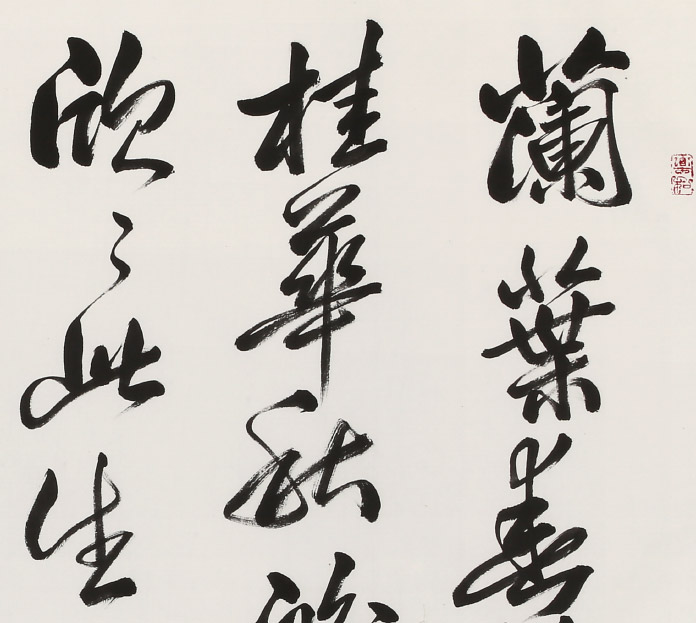 蘭葉春
桂華秋
欣〻此生